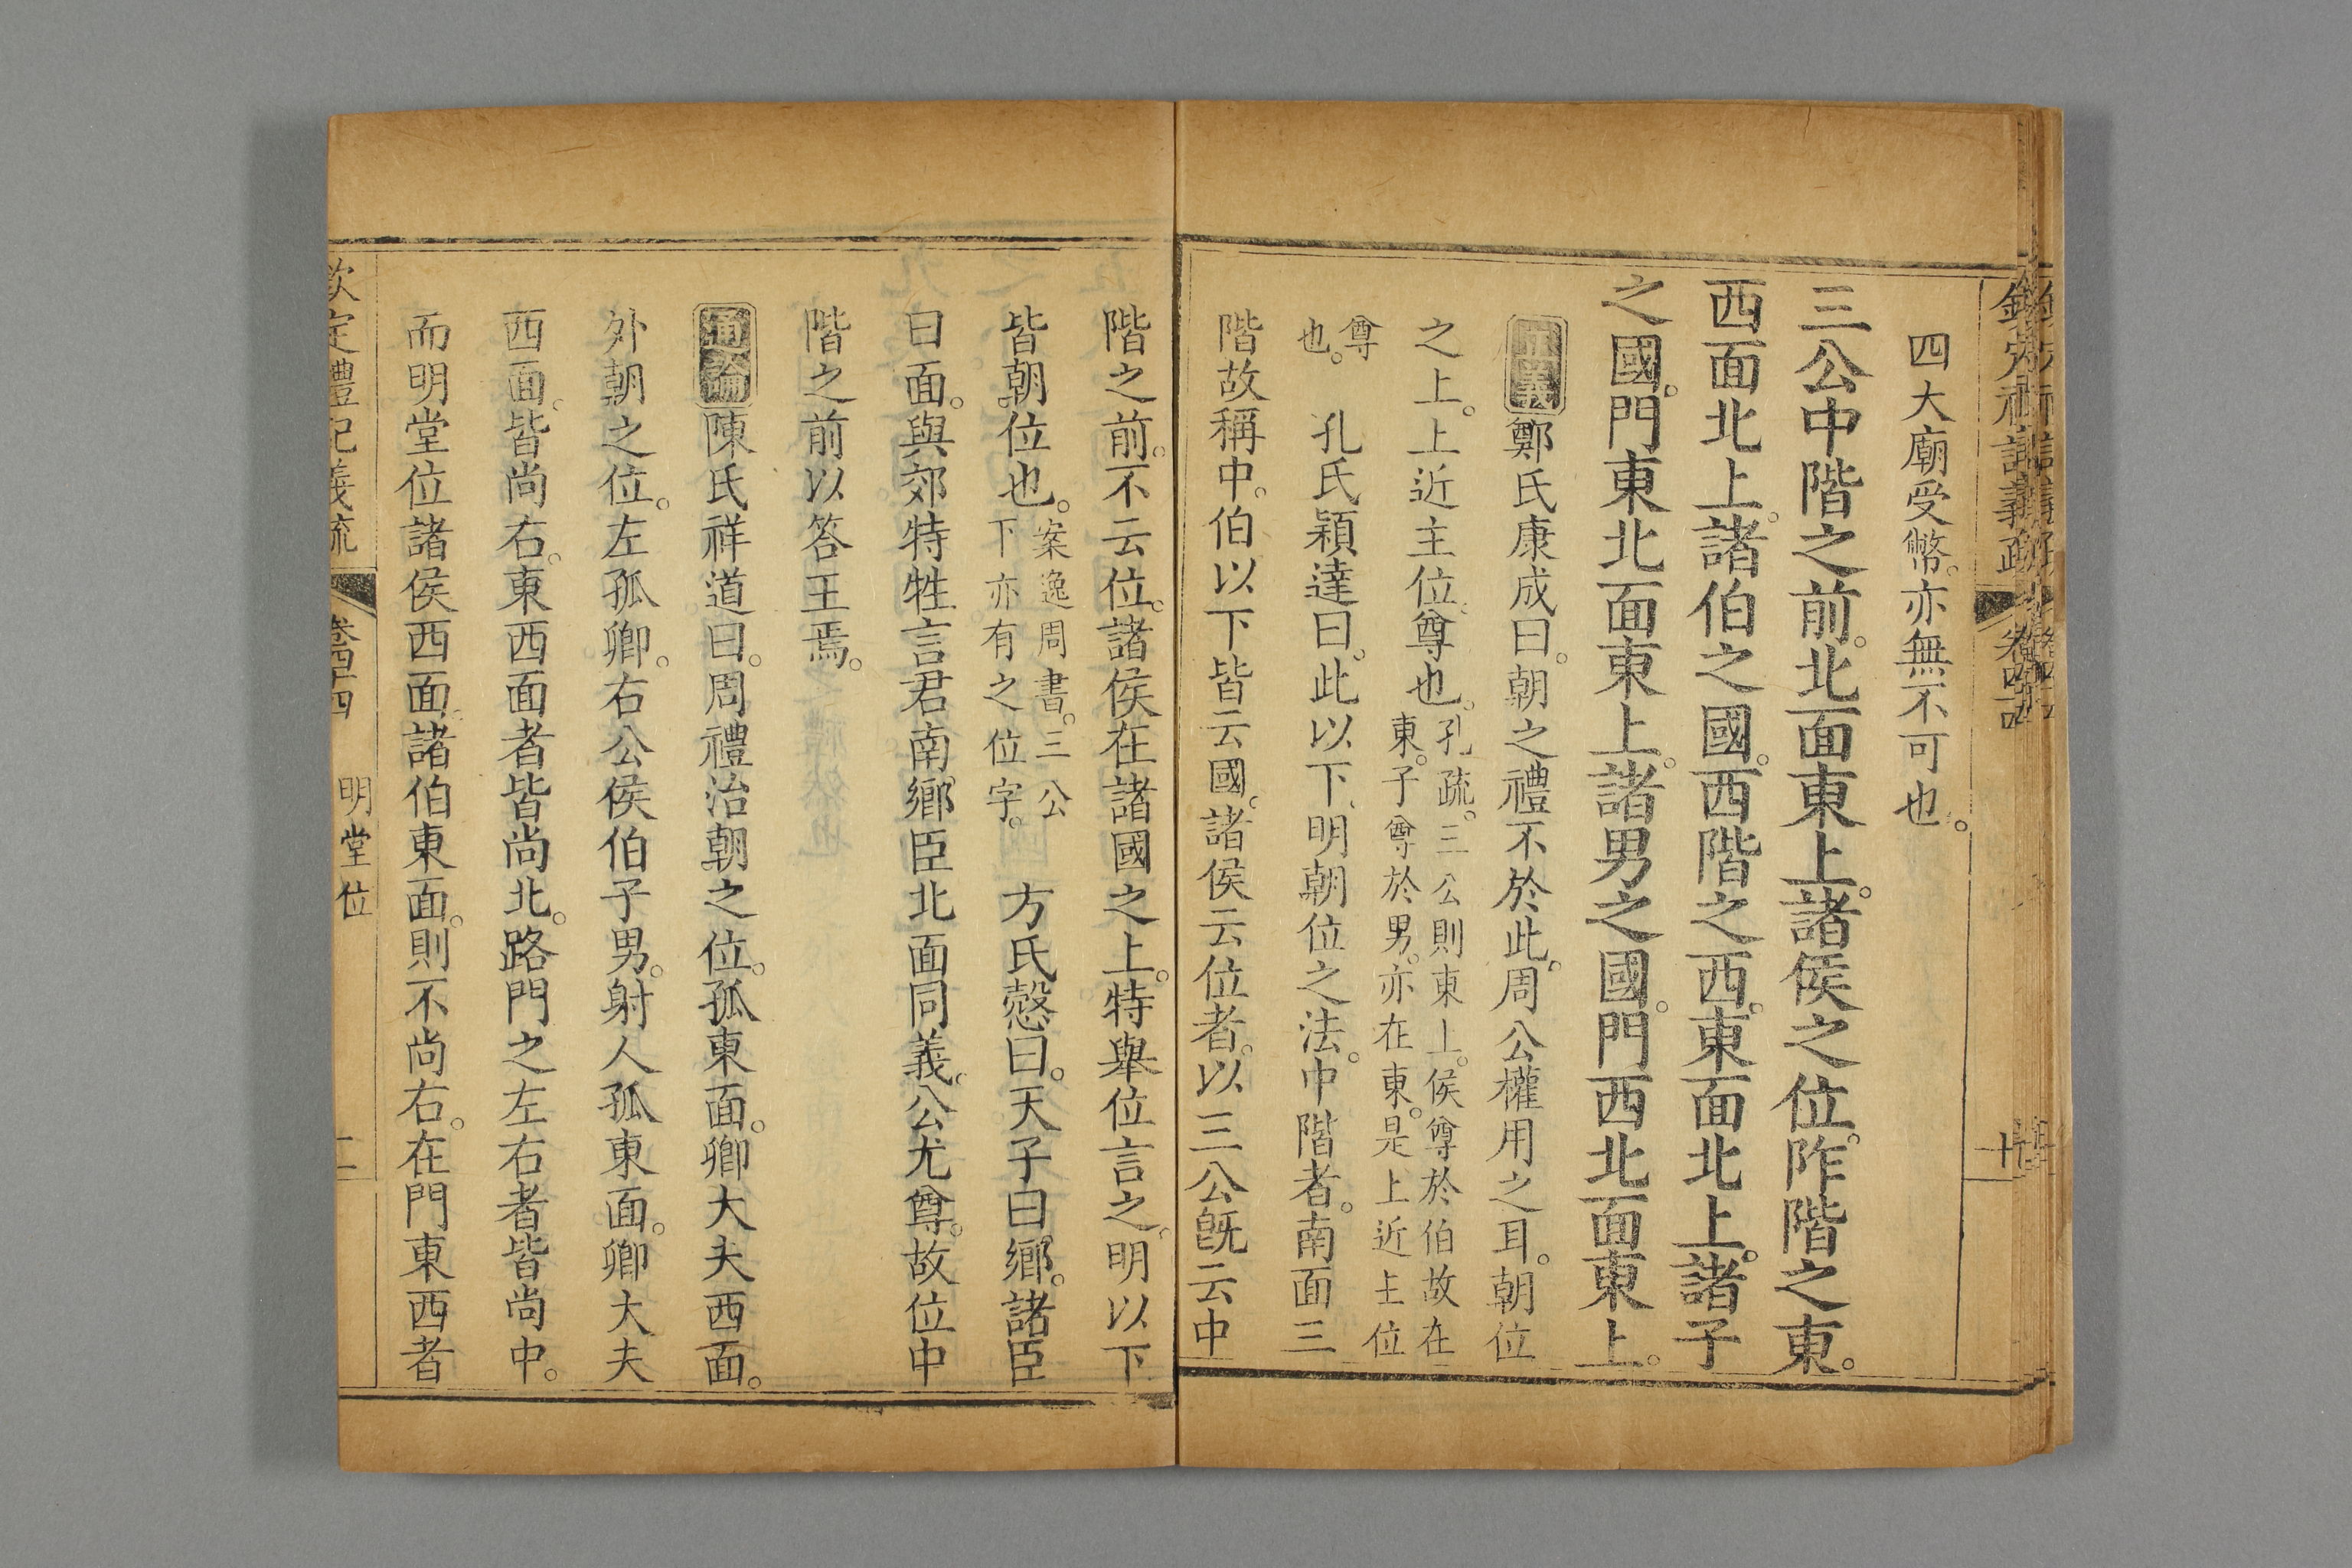 四大廟受幣。亦無不可也。
三公中階之前。北面東上。諸侯之位。阼階之東。
西面北上。諸伯之國。西階之西。東面北上。諸子
之國。門東北面東上。諸男之國。門西北面東上。
正義鄭氏康成曰。朝之禮不於此。周公權用之耳。朝位
之上。上近主位。尊也。孔疏。三公則東上。侯尊於伯故在
東。子尊於男。亦在東。是上近主位
尊
也。
孔氏穎達曰。此以下。明朝位之法。中階者。南面三
階故稱中。伯以下皆云國。諸侯云位者。以三公旣云中
階之前。不云位。諸侯在諸國之上。特舉位言之。明以下
皆朝位也。案逸周書。三公
下亦有之位字。
方氏慤曰。天子曰鄉。諸臣
曰面。與郊特牲言君南鄉。臣北面同義。公尤尊。故位中
階之前以答王焉。
通論陳氏祥道曰。周禮治朝之位。孤東面。卿大夫西面。
外朝之位。左孤卿。右公侯伯子男。射人孤東面。卿大夫
西面。皆尚右。東西面者皆尚北。路門之左右者皆尚中。
而明堂位諸侯西面。諸伯東面。則不尚右。在門東西者
欽定禮記義疏 卷五十四 明堂位